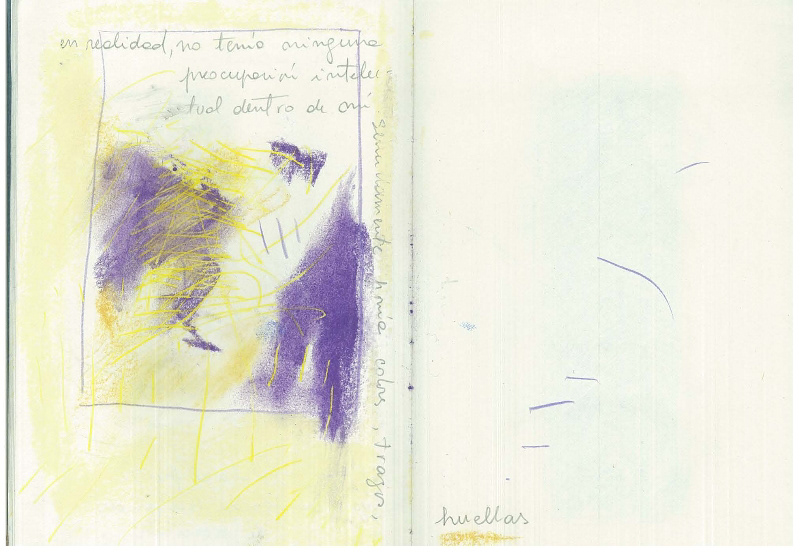 en realidad, no tenía ninguna
preocupación intelec
tual dentro de mí
sencillamente ponía colores, trazos,
huellas